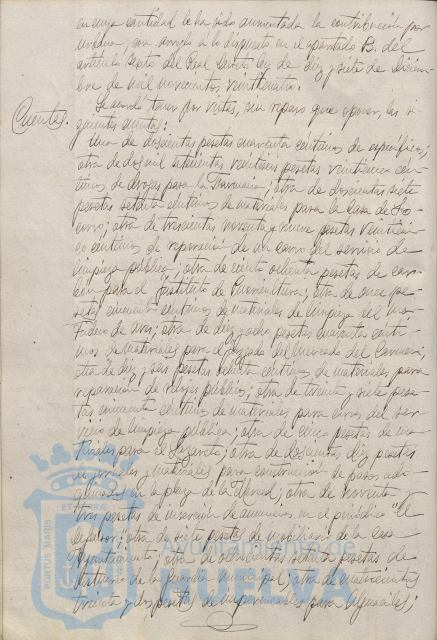 en cuya cantidad le ha sido aumentada la contribución por
urbana, con arreglo á lo dispuesto en el apartado B. del
artículo septo del Real Decreto ley de diez y siete de Diciem-
bre de mil novecientos veinticuatro.
Cuentas.
Se acordó tener por vistas, sin reparo que oponer, las si-
guientes cuentas:
Una de doscientas pesetas cuarenta céntimos de específicos;
otra de dos mil setecientas veintiseis pesetas veinticinco cén-
timos de drogas para la Farmacia; otra de doscientas siete
pesetas setenta céntimos de materiales para la Casa de So-
corro; otra de trescientas noventa y nueve pesetas veinticin-
co céntimos de reparación de un carro del servicio de
limpieza pública; otra de ciento ochenta pesetas de car-
bón para el Instituto de Puericultura; otra de once pe-
setas cincuenta céntimos de materiales de limpieza al Ma-
tadero de aves; otra de diez y ocho pesetas cuarenta cénti-
mos de materiales para el Juzgado del Mercado del Carmen;
otra de diez y seis pesetas setenta céntimos de materiales para
reparación de relojes públicos; otra de treinta y siete pese-
tas cincuenta céntimos de materiales para carros del ser-
vicio de limpieza pública; otra de cinco pesetas de ma-
teriales para el Lazareto; otra de doscientas diez pesetas
de jornales y materiales para construcción de pasos ado-
quinados en la plaza de la Merced; otra de noventa y
tres pesetas de inserción de anuncios en el periódico "El
Defensor"; otra de siete pesetas de mobiliario de la Casa
Ayuntamiento; otra de doscientas setenta pesetas de
vestuario de la guardia municipal; otra de cuatrocientas
treinta y dos pesetas de impermeables para
ET TERRAE
PORTUS MARIS
Ayuntamiento de
HUELVA